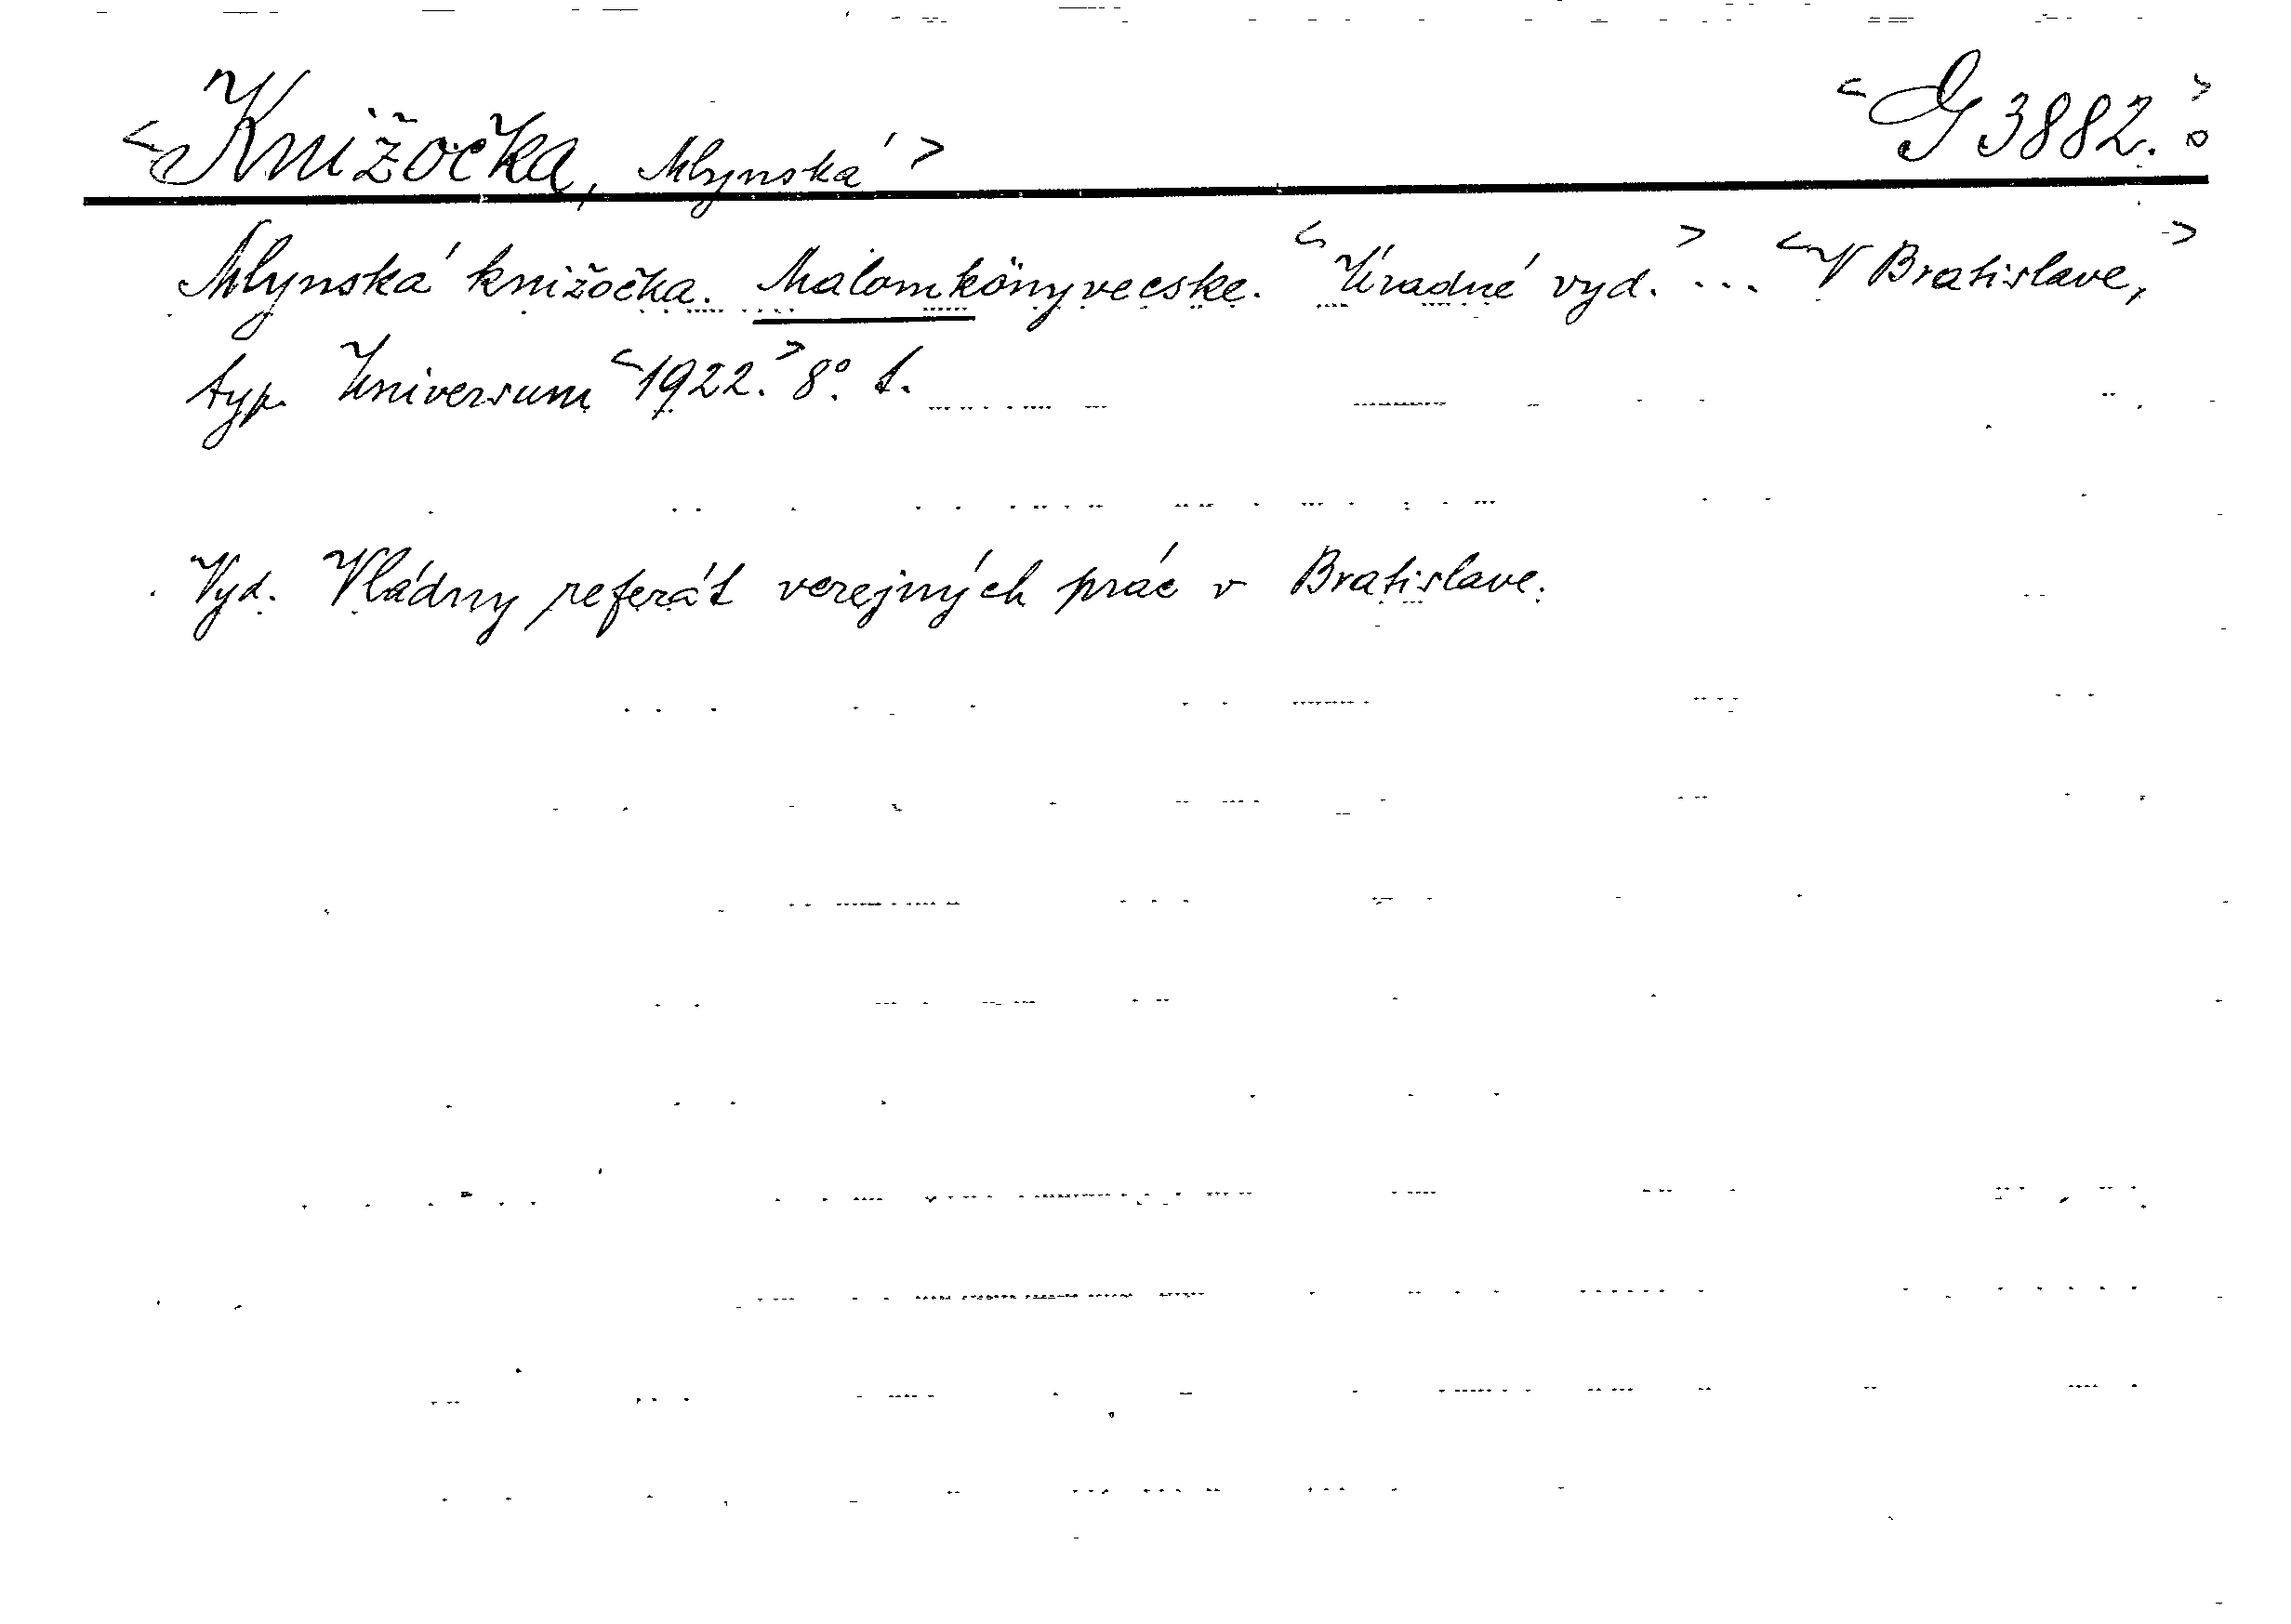 <Knižočka, Mlynská> <G 3882.>
Mlynská knižočka. Malomkönyvecske. <Úradné vyd.> ... <V Bratislave,>
typ. Universum <1922.> 8°. 1.
Vyd. Vládny referát verejných prác v Bratislave.